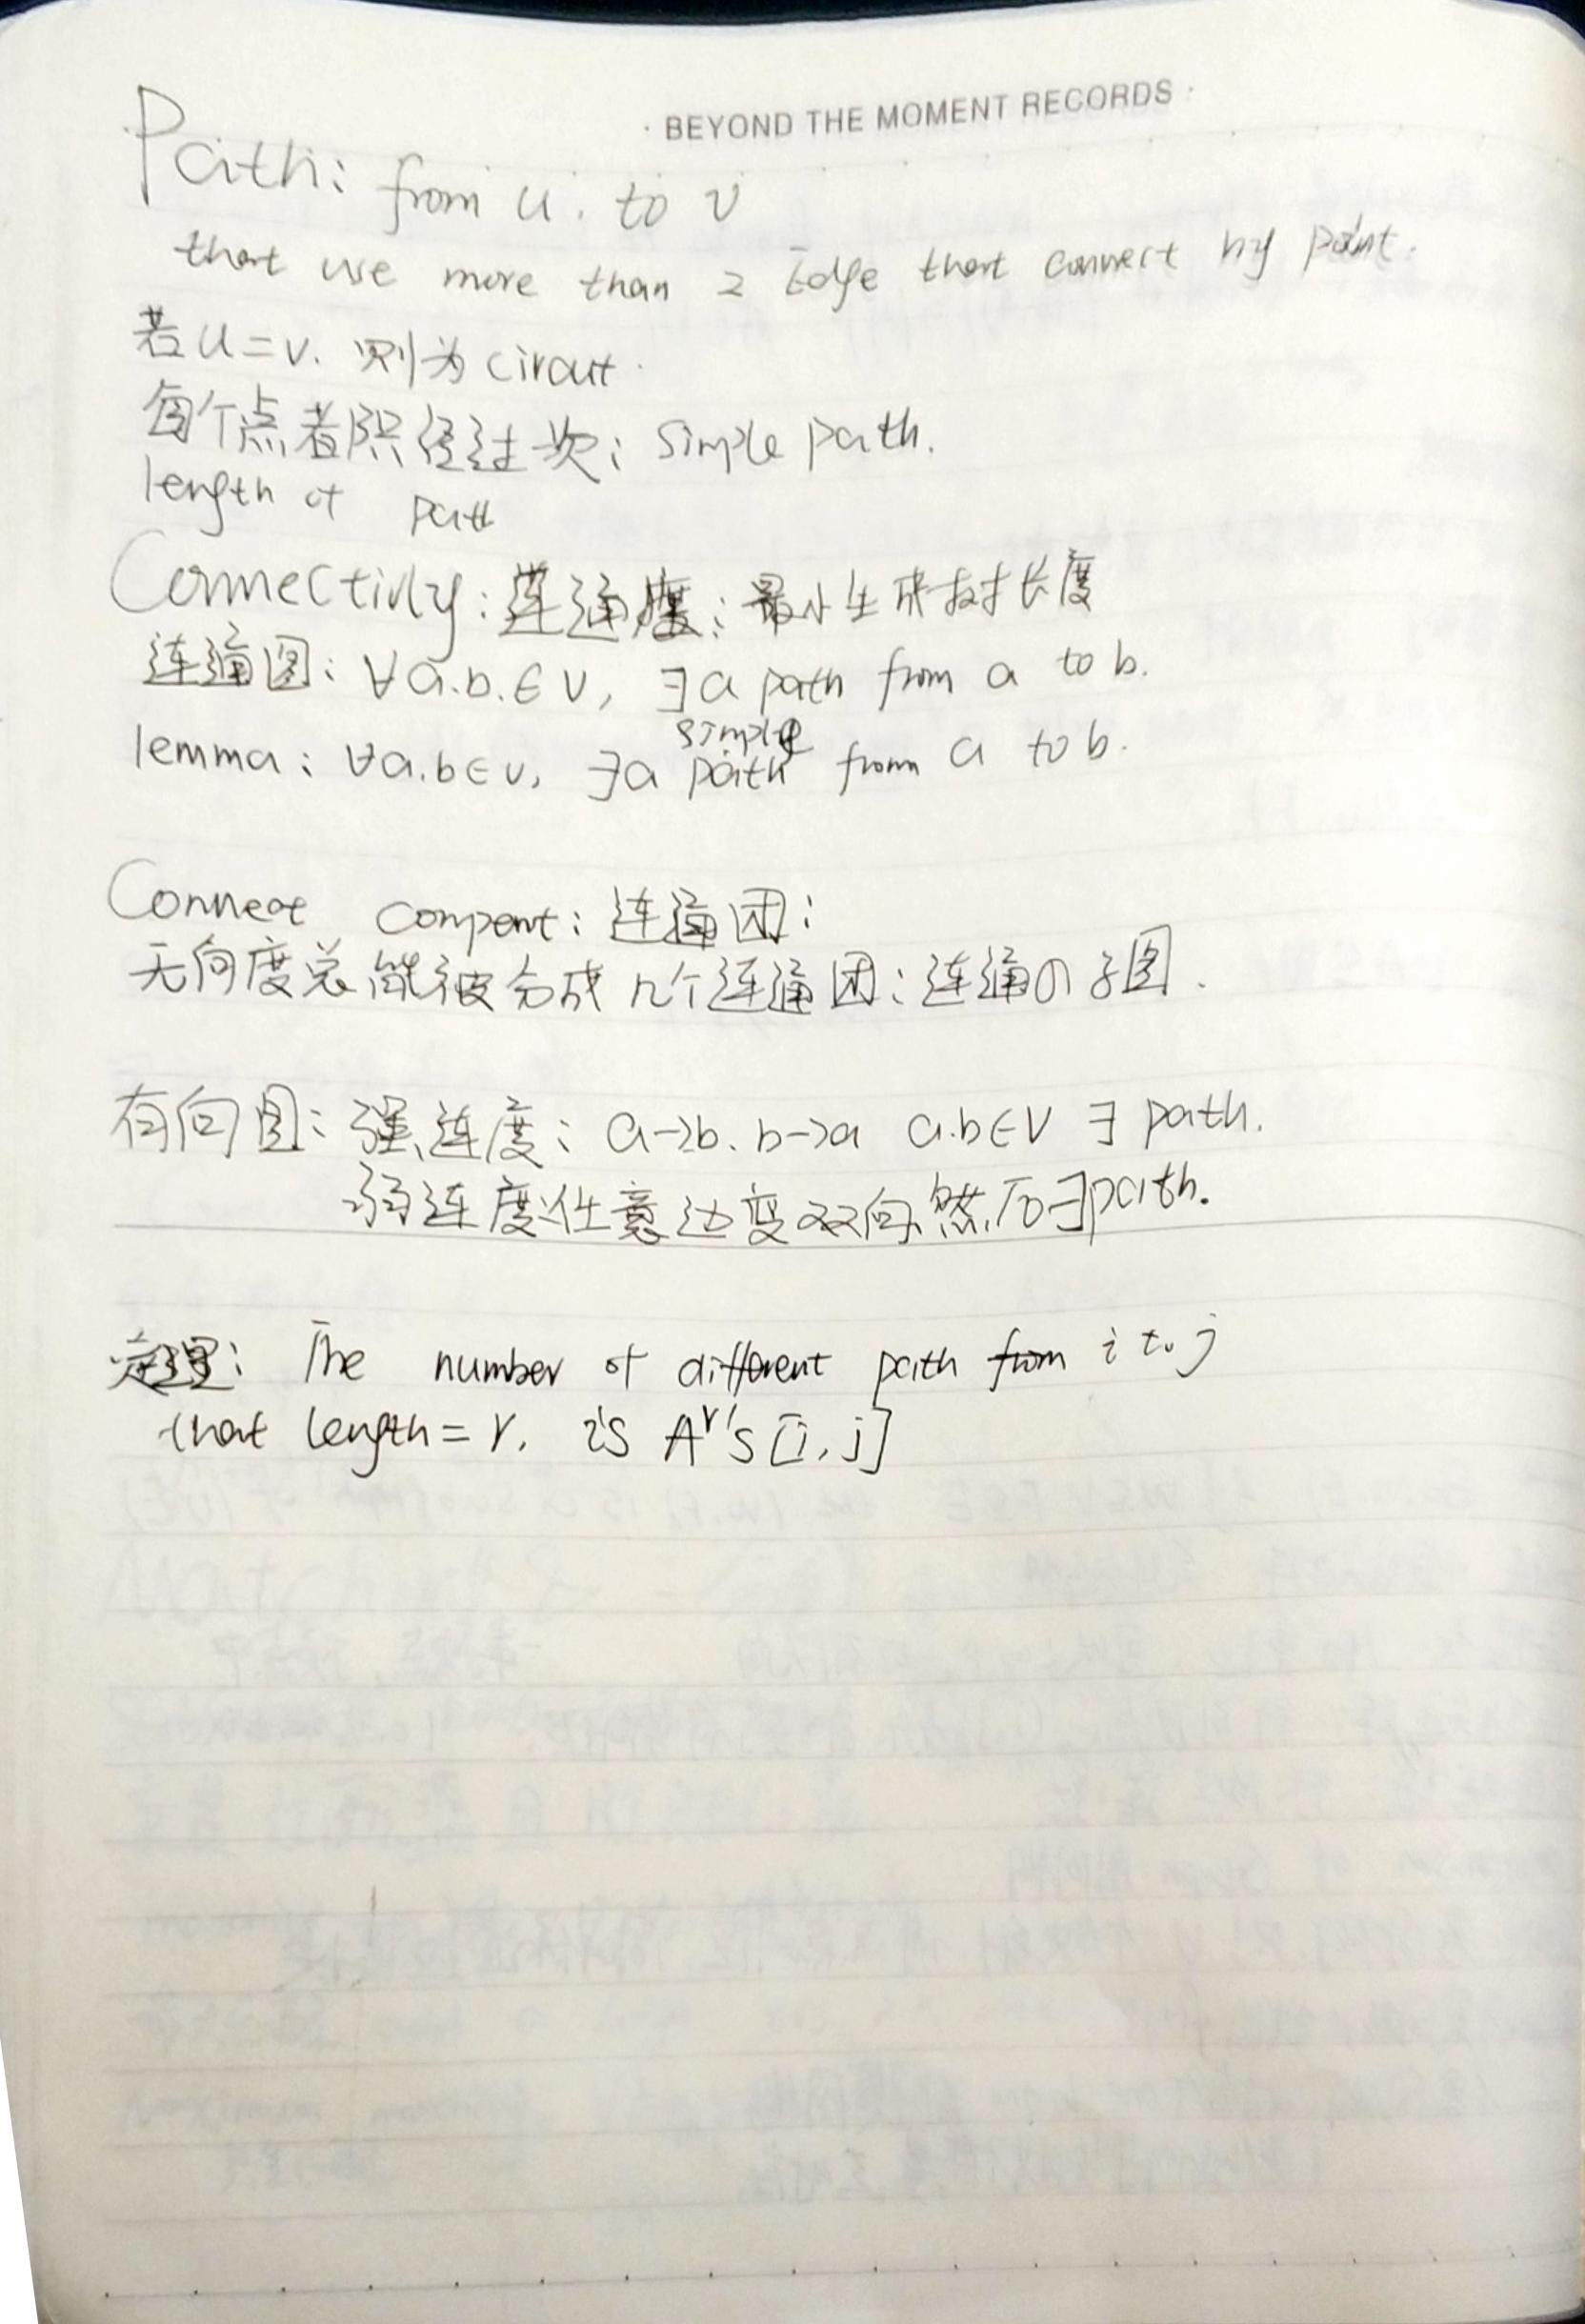 · BEYOND THE MOMENT RECORDS ·
Path: from u. to v
that use more than 2 Edge that connect by point.
若u=v. 则为 circut.
每个点都只经过一次: simple path.
length of path
Connectivly: 连通度: 最小生成树长度
连通图: ∀a.b.∈V, ∃a path from a to b.
simple
lemma: ∀a.b∈v, ∃a path from a to b.
Connect compent: 连通团:
无向度总能被分成几个连通团: 连通の子图.
有向图: 强连度: a→b. b→a a.b∈V ∃ path.
弱连度:任意边变双向,然后∃path.
定理: The number of different path from i to j
that length=r. is Aʳ's [i, j]